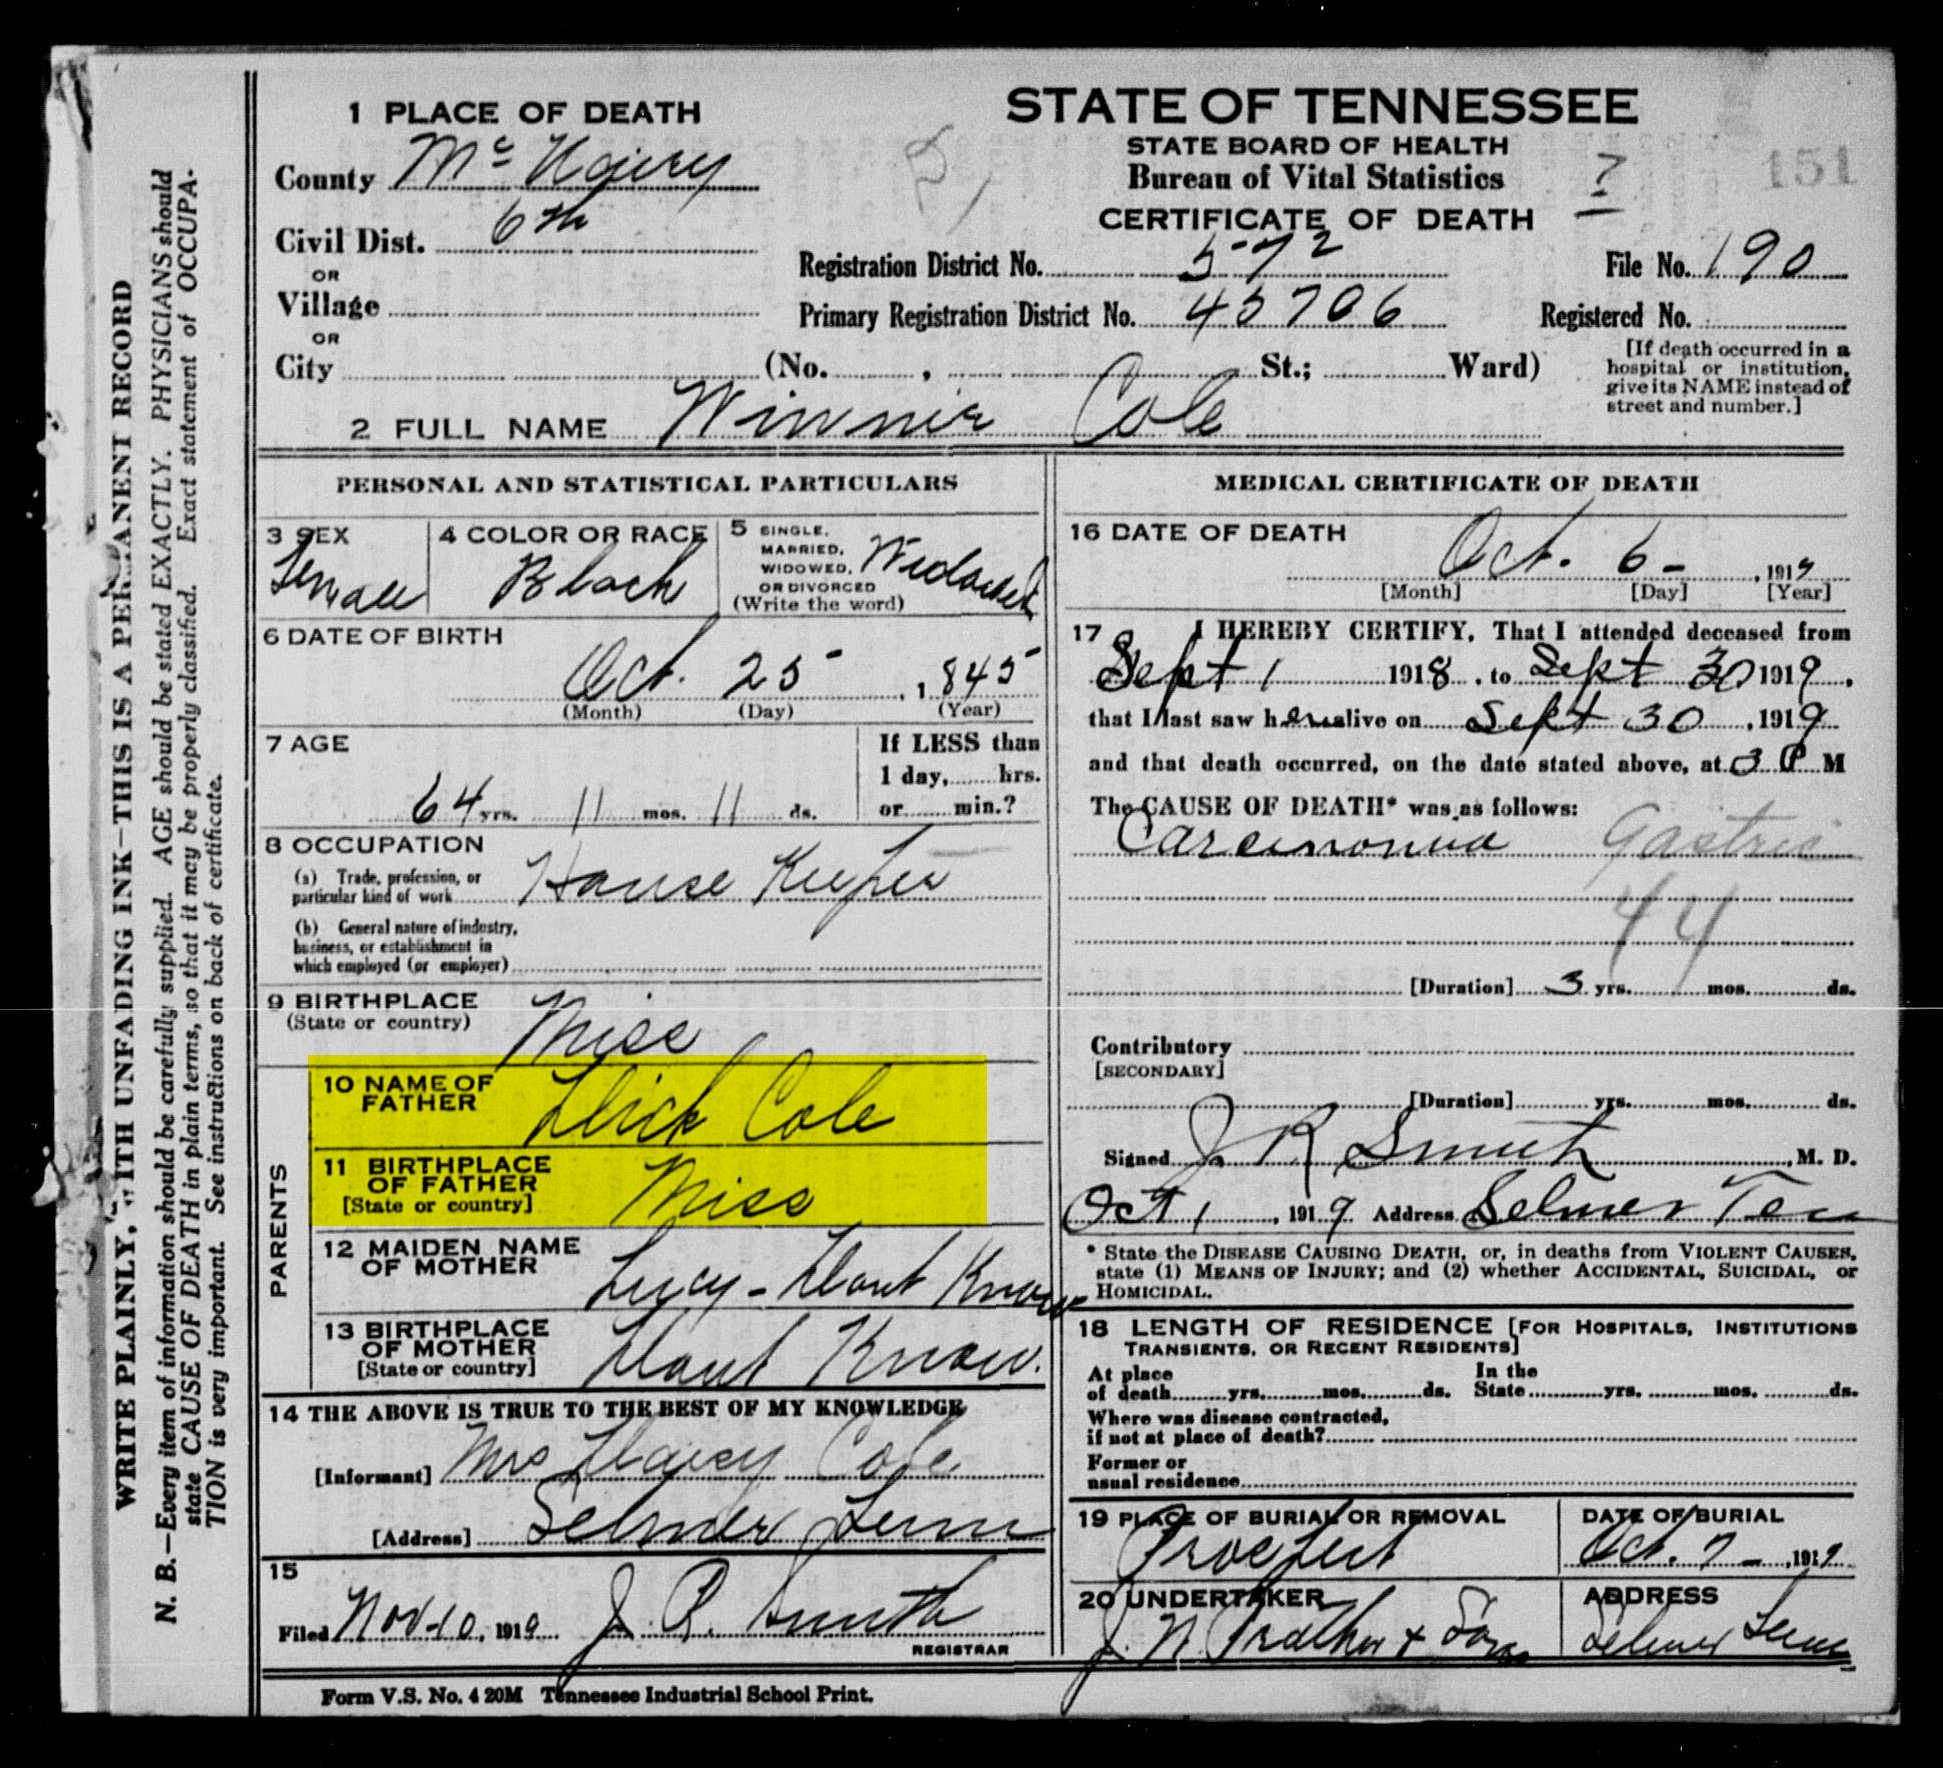 WRITE PLAINLY, WITH UNFADING INK—THIS IS A PERMANENT RECORD
N. B.—Every item of information should be carefully supplied. AGE should be stated EXACTLY. PHYSICIANS should
state CAUSE OF DEATH in plain terms, so that it may be properly classified. Exact statement of OCCUPA-
TION is very important. See instructions on back of certificate.
1 PLACE OF DEATH
County Mc Nairy
Civil Dist. 6th
OR
Village
OR
City (No. , St.; Ward)
STATE OF TENNESSEE
STATE BOARD OF HEALTH
Bureau of Vital Statistics
CERTIFICATE OF DEATH
? 151
Registration District No. 572 File No. 190
Primary Registration District No. 45706 Registered No.
[If death occurred in a
hospital or institution,
give its NAME instead of
street and number.]
2 FULL NAME Winnie Cole
PERSONAL AND STATISTICAL PARTICULARS
3 SEX
Female
4 COLOR OR RACE
Black
5 SINGLE,
MARRIED,
WIDOWED,
OR DIVORCED
(Write the word)
Widowed
6 DATE OF BIRTH
Oct. 25 , 1845
(Month) (Day) (Year)
7 AGE
64 yrs. 11 mos. 11 ds.
If LESS than
1 day, hrs.
or min.?
8 OCCUPATION
(a) Trade, profession, or
particular kind of work House Keeper
(b) General nature of industry,
business, or establishment in
which employed (or employer)
9 BIRTHPLACE
(State or country) Miss
PARENTS
10 NAME OF
FATHER Dick Cole
11 BIRTHPLACE
OF FATHER
[State or country] Miss
12 MAIDEN NAME
OF MOTHER Lucy - Dont Know
13 BIRTHPLACE
OF MOTHER
[State or country] Dont Know.
14 THE ABOVE IS TRUE TO THE BEST OF MY KNOWLEDGE
[Informant] Mrs Cole
[Address] Selmer Tenn
15
Filed Nov-10, 1919 J. R. Smith
REGISTRAR
MEDICAL CERTIFICATE OF DEATH
16 DATE OF DEATH
Oct. 6- , 1919
[Month] [Day] [Year]
17 I HEREBY CERTIFY, That I attended deceased from
Sept 1 1918, to Sept 30 1919,
that I last saw her alive on Sept 30, 1919
and that death occurred, on the date stated above, at 3 P M
The CAUSE OF DEATH* was as follows:
Carcinonua Gastric
44
[Duration] 3 yrs. mos. ds.
Contributory
[SECONDARY]
[Duration] yrs. mos. ds.
Signed J. R Smith, M. D.
Oct 1, 1919 Address Selmer Ten
* State the DISEASE CAUSING DEATH, or, in deaths from VIOLENT CAUSES,
state (1) MEANS OF INJURY; and (2) whether ACCIDENTAL, SUICIDAL, or
HOMICIDAL.
18 LENGTH OF RESIDENCE [FOR HOSPITALS, INSTITUTIONS
TRANSIENTS, OR RECENT RESIDENTS]
At place
of death yrs. mos. ds.
In the
State yrs. mos. ds.
Where was disease contracted,
if not at place of death?
Former or
usual residence
19 PLACE OF BURIAL OR REMOVAL
Prospect
DATE OF BURIAL
Oct. 7-, 1919
20 UNDERTAKER
J. N. Prather + Sons
ADDRESS
Selmer Tenn
Form V.S. No. 4 20M Tennessee Industrial School Print.